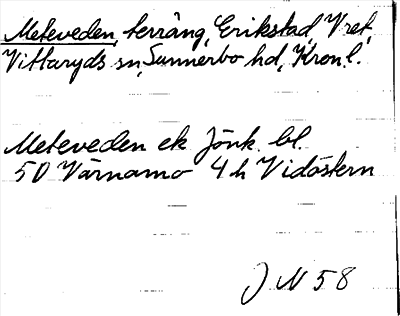 Meteveden, terräng, Erikstad, Vret,
Vittaryds sn, Sunnerbo hd, Kron.l.
Meteveden ek Jönk. bl.
50 Värnamo 4h Vidöstern
J N 58